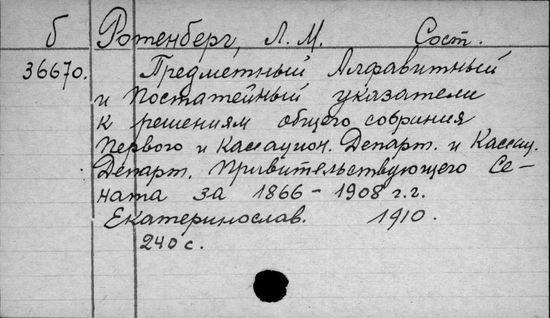 б Ротенберг, Л. М. Сост.
36670. Предметный Алфавитный
и постатейный указатели
к решениям общего собрания
Первого и Кассацион. Департ. и Кассац.
Департ. Правительствующего Се-
ната за 1866 - 1908 г.г.
Екатеринослав. 1910.
240 с.